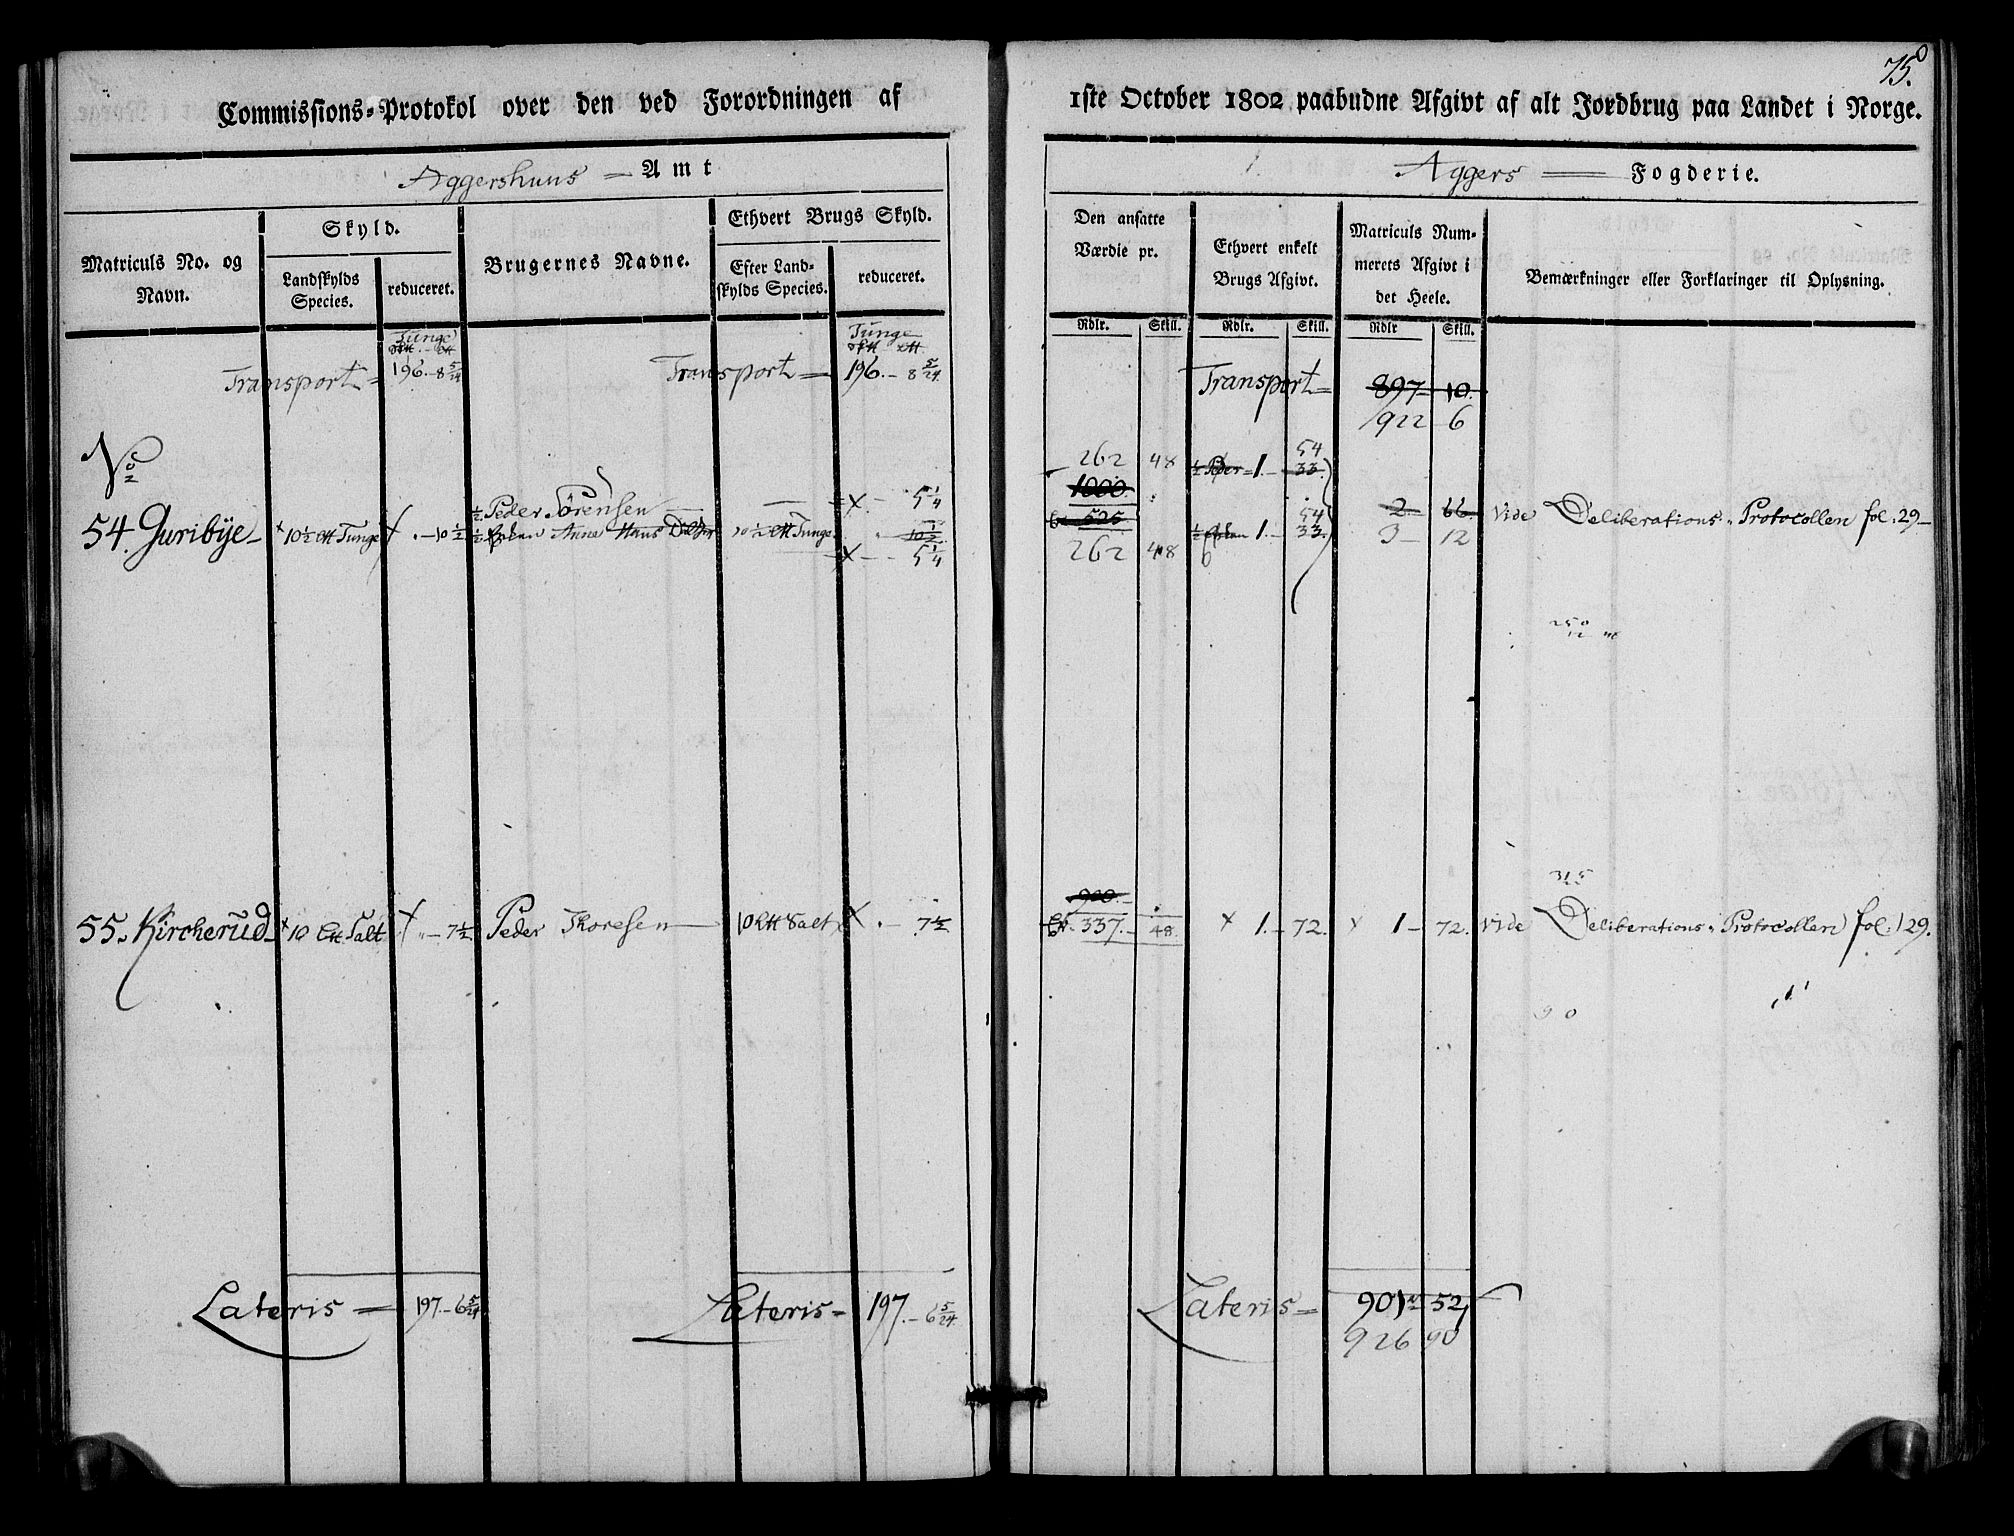 75.
Commissions-Protokol over den ved Forordningen af 1ste October 1802 paabudne Afgivt af alt Jordbrug paa Landet i Norge.
Aggershuus Amt
Aggers Fogderie.
Matriculs No. og Navn.
Skyld.
Landskylds Species.
reduceret.
Brugernes Navne.
Ethvert Brugs Skyld.
Efter Landskylds Species.
reduceret.
Den ansatte Værdie pr.
Ethvert enkelt Brugs Afgivt.
Matriculs Nummerets Afgivt i det Heele.
Bemærkninger eller Forklaringer til Oplysning.
Rdlr. Skill. Rdlr. Skill. Rdlr Skill.
Tunge Tunge
Transport = 196. - 8 5/24 Transport = 196. - 8 5/24. Transport = 897 - 10.
922 6
No
262 48 1/2 Peder = 1. - 54
33
1000.
1/2. Peder Sørensen x - 5 1/4
54. Guribye - 10 1/2 Tunge - 10 1/2 1/2 Enken Anne Hans 10 1/2 Tunge 10 1/2 525 1/2 Enken 1. - 54
33. 2 - 66. Vide Deliberations-Protocollen fol. 29 -
x - 5 1/4 262 48 3 - 12
250
315
900.
55. Kircherud - 10 Salt - 7 1/2 Peder Thoresen 10 Salt x - 7 1/2 337. - 48. x 1. - 72. x 1 - 72. Vide Deliberations-Protocollen fol. 129.
90
Lateris = 197. - 6 5/24 Lateris - 197. - 6 5/24. Lateris = 901 52
926 90